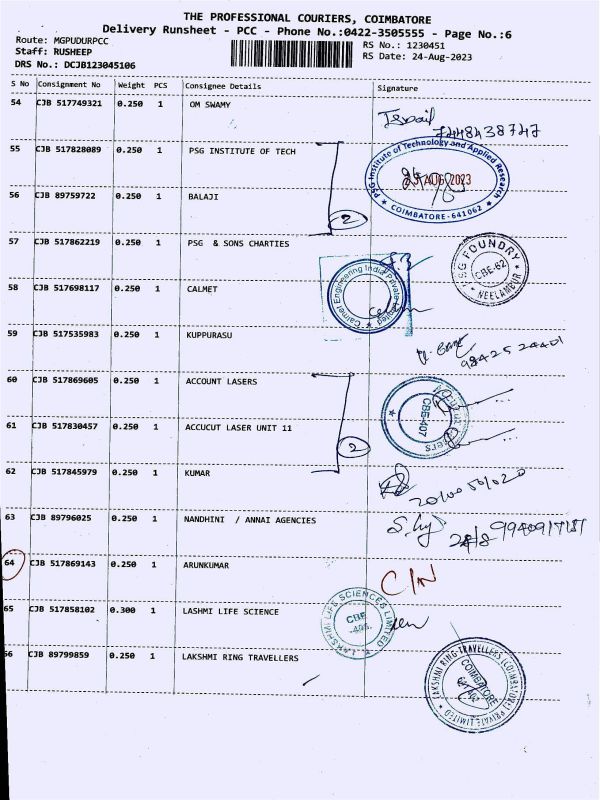 THE PROFESSIONAL COURIERS, COIMBATORE
Delivery Runsheet - PCC - Phone No.:0422-3505555 - Page No.:6
Route: MGPUDURPCC
RS No.: 1230451
Staff: RUSHEEP
RS Date: 24-Aug-2023
DRS No.: DCJB123045106
S No Consignment No Weight PCS Consignee Details Signature
54 CJB 517749321 0.250 1 OM SWAMY
55 CJB 517828089 0.250 1 PSG INSTITUTE OF TECH
PSG Institute of Technology and Applied Research
AUG 2023
COIMBATORE-641062
56 CJB 89759722 0.250 1 BALAJI
2
57 CJB 517862219 0.250 1 PSG & SONS CHARTIES
PSG FOUNDRY
CBE-62
NEELAMBUR
58 CJB 517698117 0.250 1 CALMET
Calmet Engineering India Private Limited
59 CJB 517535983 0.250 1 KUPPURASU
60 CJB 517869605 0.250 1 ACCOUNT LASERS
CBE-407
61 CJB 517830457 0.250 1 ACCUCUT LASER UNIT 11
2
62 CJB 517845979 0.250 1 KUMAR
63 CJB 89796025 0.250 1 NANDHINI / ANNAI AGENCIES
64 CJB 517869143 0.250 1 ARUNKUMAR
C/N
65 CJB 517858102 0.300 1 LASHMI LIFE SCIENCE
LAKSHMI LIFE SCIENCES LIMITED
CBE
66 CJB 89799859 0.250 1 LAKSHMI RING TRAVELLERS
LAKSHMI RING TRAVELLERS (COIMBATORE) PRIVATE LIMITED
COIMBATORE